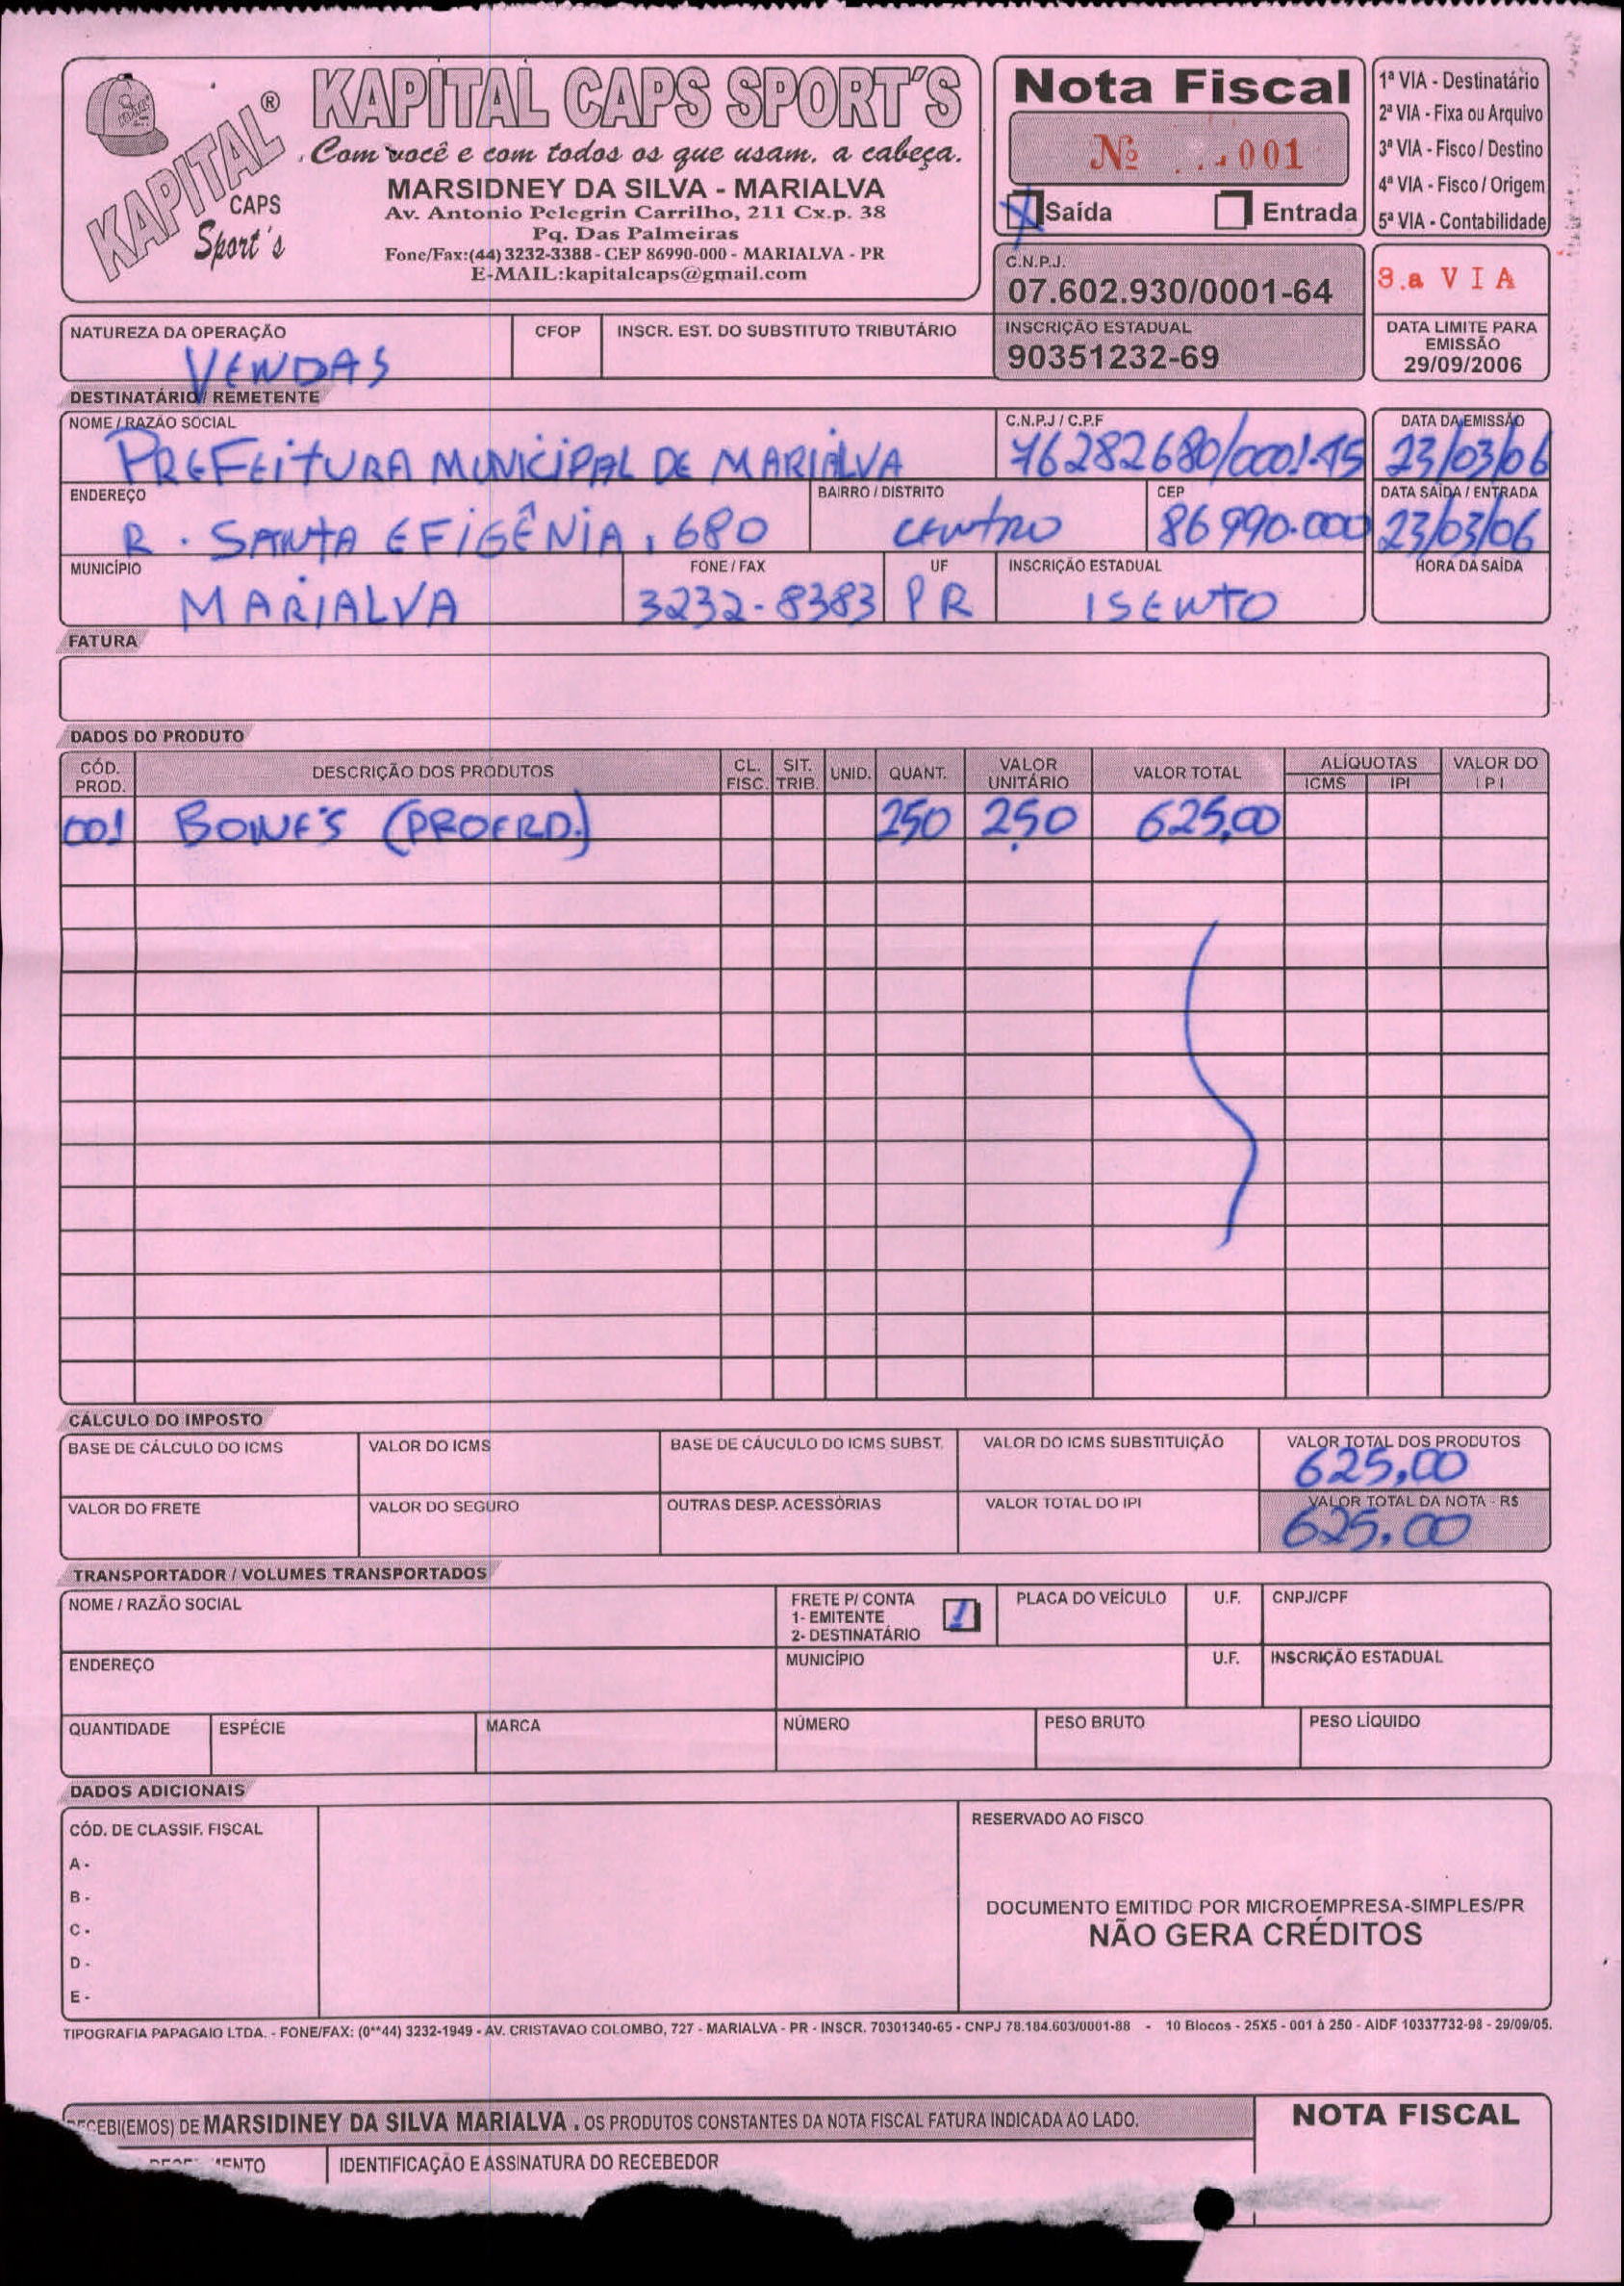 KAPITAL®
CAPS
Sport's
KAPITAL CAPS SPORT'S
Com você e com todos os que usam, a cabeça.
MARSIDNEY DA SILVA - MARIALVA
Av. Antonio Pelegrin Carrilho, 211 Cx.p. 38
Pq. Das Palmeiras
Fone/Fax:(44) 3232-3388 - CEP 86990-000 - MARIALVA - PR
E-MAIL:kapitalcaps@gmail.com
Nota Fiscal
Nº 001
X Saída Entrada
1ª VIA - Destinatário
2ª VIA - Fixa ou Arquivo
3ª VIA - Fisco / Destino
4ª VIA - Fisco / Origem
5ª VIA - Contabilidade
C.N.P.J.
07.602.930/0001-64
3.a VIA
INSCRIÇÃO ESTADUAL
90351232-69
DATA LIMITE PARA
EMISSÃO
29/09/2006
NATUREZA DA OPERAÇÃO CFOP INSCR. EST. DO SUBSTITUTO TRIBUTÁRIO
VENDAS
DESTINATÁRIO / REMETENTE
NOME / RAZÃO SOCIAL C.N.P.J / C.P.F DATA DA EMISSÃO
PREFEITURA MUNICIPAL DE MARIALVA 76282680/0001-45 23/03/06
ENDEREÇO BAIRRO / DISTRITO CEP DATA SAÍDA / ENTRADA
R. SANTA EFIGÊNIA, 680 CENTRO 86990.000 23/03/06
MUNICÍPIO FONE / FAX UF INSCRIÇÃO ESTADUAL HORA DA SAÍDA
MARIALVA 3232-8383 PR ISENTO
FATURA
DADOS DO PRODUTO
CÓD. PROD. DESCRIÇÃO DOS PRODUTOS CL. FISC. SIT. TRIB. UNID. QUANT. VALOR UNITÁRIO VALOR TOTAL ALÍQUOTAS ICMS IPI VALOR DO IPI
001 BONE'S (PROERD.) 250 2,50 625,00
CÁLCULO DO IMPOSTO
BASE DE CÁLCULO DO ICMS VALOR DO ICMS BASE DE CÁUCULO DO ICMS SUBST. VALOR DO ICMS SUBSTITUIÇÃO VALOR TOTAL DOS PRODUTOS
625,00
VALOR DO FRETE VALOR DO SEGURO OUTRAS DESP. ACESSÓRIAS VALOR TOTAL DO IPI VALOR TOTAL DA NOTA - R$
625,00
TRANSPORTADOR / VOLUMES TRANSPORTADOS
NOME / RAZÃO SOCIAL FRETE P/ CONTA PLACA DO VEÍCULO U.F. CNPJ/CPF
1- EMITENTE 1
2- DESTINATÁRIO
ENDEREÇO MUNICÍPIO U.F. INSCRIÇÃO ESTADUAL
QUANTIDADE ESPÉCIE MARCA NÚMERO PESO BRUTO PESO LÍQUIDO
DADOS ADICIONAIS
CÓD. DE CLASSIF. FISCAL RESERVADO AO FISCO
A -
B -
C -
D -
E -
DOCUMENTO EMITIDO POR MICROEMPRESA-SIMPLES/PR
NÃO GERA CRÉDITOS
TIPOGRAFIA PAPAGAIO LTDA. - FONE/FAX: (0**44) 3232-1949 - AV. CRISTAVAO COLOMBO, 727 - MARIALVA - PR - INSCR. 70301340-65 - CNPJ 78.184.603/0001-88 - 10 Blocos - 25X5 - 001 à 250 - AIDF 10337732-98 - 29/09/05.
CEBI(EMOS) DE MARSIDINEY DA SILVA MARIALVA . OS PRODUTOS CONSTANTES DA NOTA FISCAL FATURA INDICADA AO LADO. NOTA FISCAL
IDENTIFICAÇÃO E ASSINATURA DO RECEBEDOR